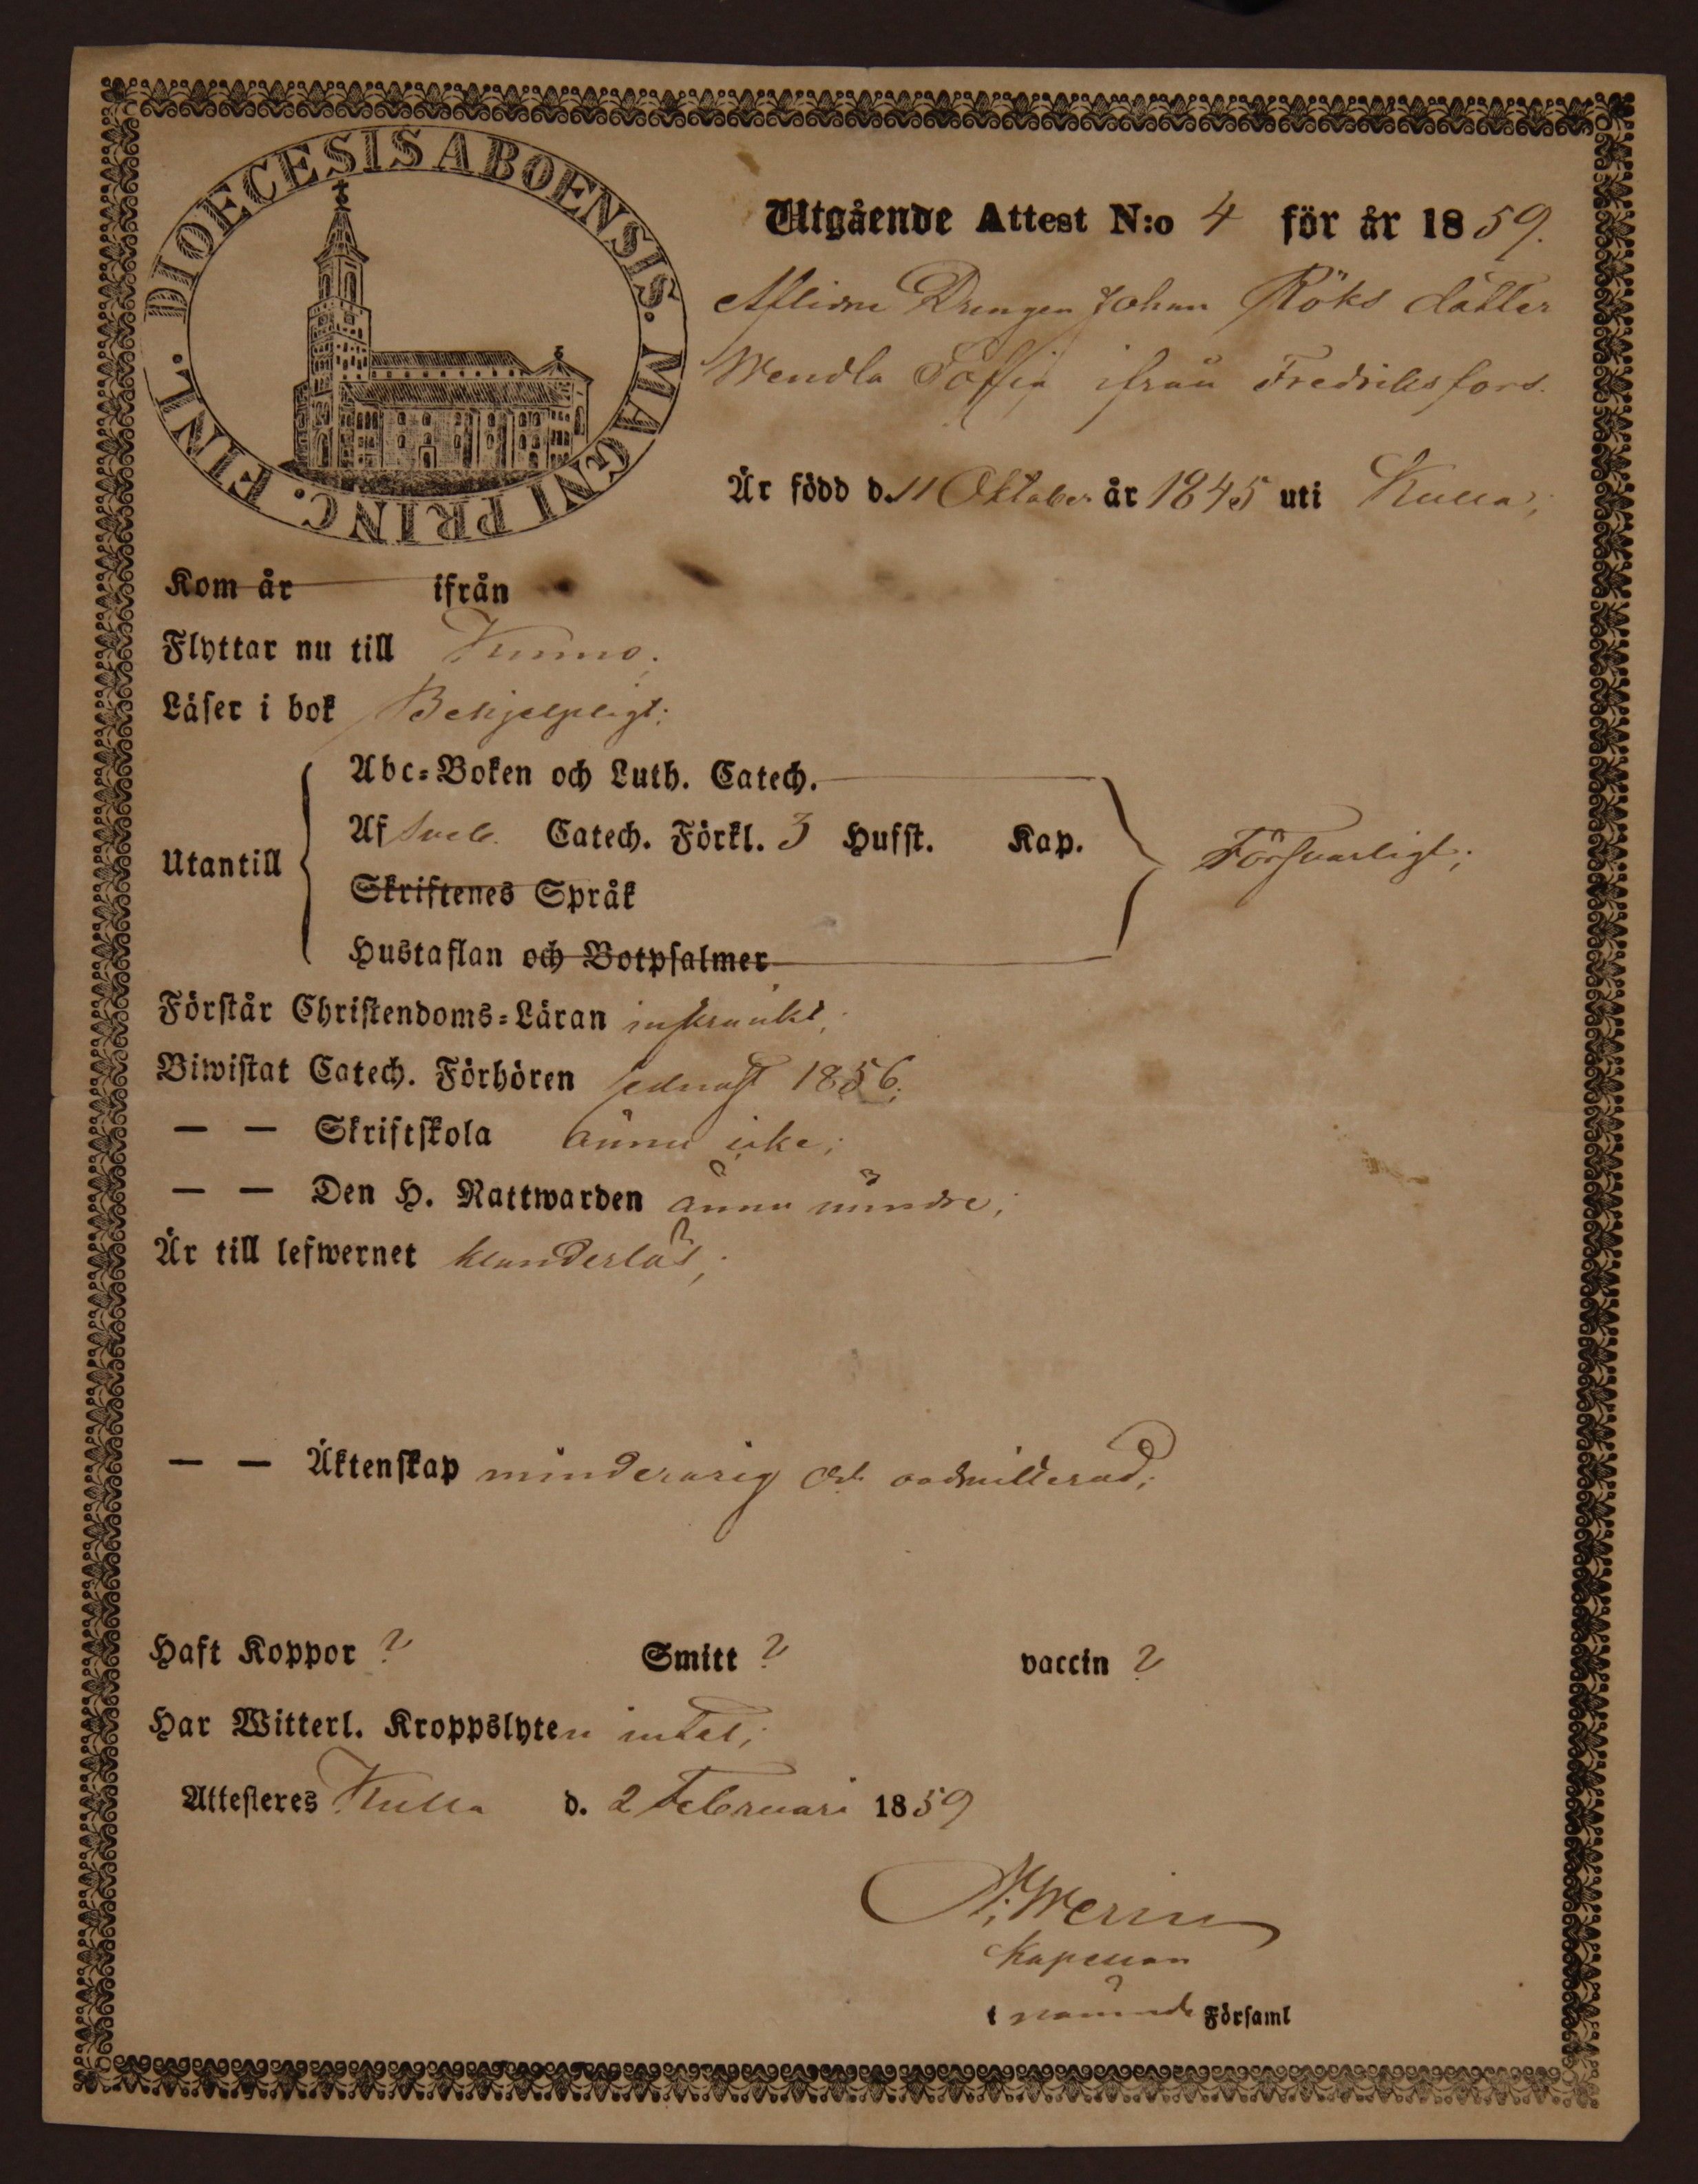 DIOECESIS ABOENSIS. MAGNI PRINC. FINL.
Utgående Attest N:o 4 för år 1859.
Aflidne Drengen Johan Röks dotter
Wendla Sofia ifrån Fredriksfors.
Är född d. 11 Oktober år 1845 uti Kulla;
Kom år ifrån
Flyttar nu till Kumo;
Läser i bok Behjelpligt;
Abc-Boken och Luth. Catech.
Af Sveb. Catech. Förkl. 3 Hufst. Kap.
Utantill
Försvarligt;
Skriftenes Språk
Hustaflan och Botpsalmer
Förstår Christendoms-Läran inskränkt;
Biwistat Catech. Förhören sednast 1856;
— — Skriftskola ännu icke;
— — Den H. Nattwarden ännu mindre;
Är till lefwernet klanderlös;
— — Äktenskap minderårig och oadmitterad;
Haft Koppor ? Smitt ? vaccin ?
Har Witterl. Kroppslyten intet;
Attesteres Kulla d. 2 Februari 1859
Kapellan
i nämnde Församl